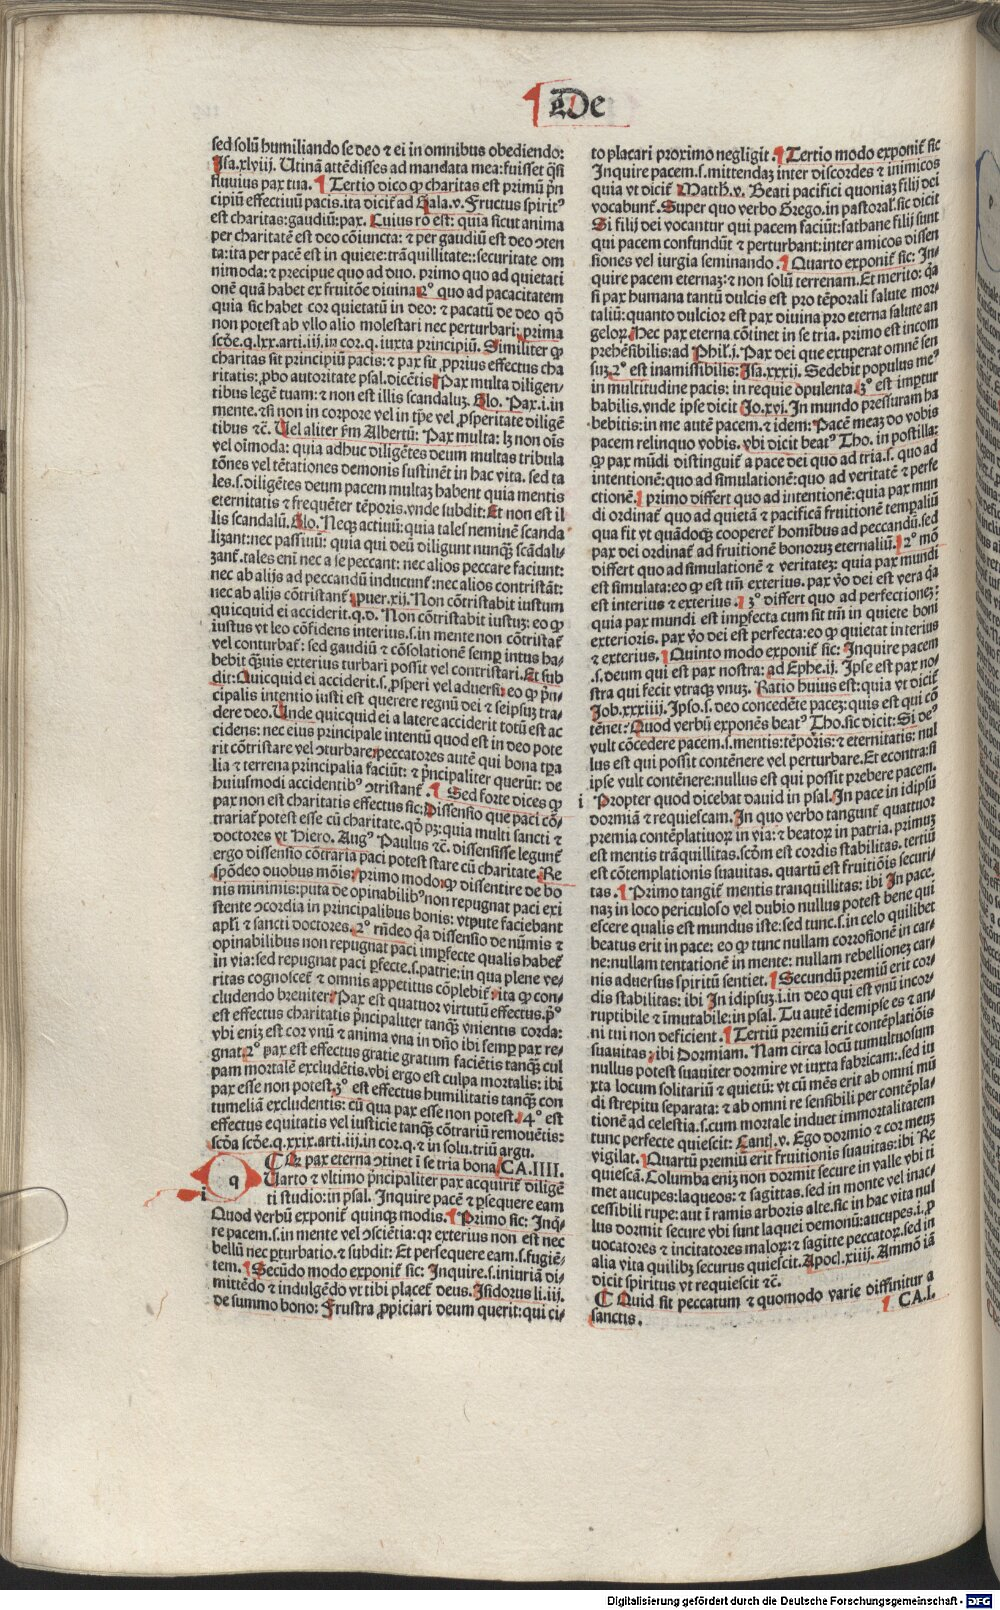 De
sed solū humiliando se deo ⁊ ei in omnibus obediendo:
Isa.xlviij. Utinā attēdisses ad mandata mea: fuisset q̄si
fluvius pax tua. ¶ Tertio dico ꝙ charitas est primū p̄n
cipiū effectiuū pacis. ita dicit̄ ad Gala.v. Fructus spirit⁹
est charitas: gaudiū: pax. Cuius rō est: quia sicut anima
per charitatē est deo cōiuncta: ⁊ per gaudiū est deo ↄten
ta: ita per pacē est in quiete: trāquillitate:: securitate om
nimoda: ⁊ precipue quo ad duo. primo quo ad quietati
onē quā habet ex fruitōe diuina 2° quo ad pacacitatem
quia sic habet cor quietatū in deo: ⁊ pacatū de deo qđ
non potest ab vllo alio molestari nec perturbari: prima
scđe.q.lxx.arti.iij.in cor.q. iuxta principiū. Similiter ꝙ
charitas sit principiū pacis: ⁊ pax sit ꝓprius effectus cha
ritatis: ꝓbo autoritate psal. dicētis Pax multa diligen⸗
tibus legē tuam: ⁊ non est illis scandaluꝫ. Glo. Pax.i.in
mente. ⁊si non in corpore vel in tꝑe vel ꝓsperitate diligē
tibus ⁊c̄. Uel aliter ẜm Albertū: Pax multa: lꝫ non oīs
vel oīmoda: quia adhuc diligētes deum multas tribula
tōnes vel tētationes demonis sustinēt in hac vita. sed ta
les.s.diligētes deum pacem multaꝫ habent quia mentis
eternitatis ⁊ frequēter tēporis. vnde subdit: Et non est il
lis scandalū. Glo. Neqꝫ actiuū: quia tales neminē scanda
lizant: nec passiuū: quia qui deū diligunt nunqꝫ scādali⸗
zant̄. tales eni nec a se peccant: nec alios peccare faciunt:
nec ab alijs ad peccandū inducunt̄: nec alios contristāt:
nec ab alijs cōtristant̄ ꝓuer.xij. Non cōtristabit iustum
quicquid ei acciderit. q.d. Non cōtristabit iustuꝫ: eo ꝙ
iustus vt leo cōfidens interius.s.in mente non cōtristat̄
vel conturbat̄: sed gaudiū ⁊ cōsolationē semꝑ intus ha⸗
bebit qꝫuis exterius turbari possit vel contristari. Et sub
dit: Quicquid ei acciderit.s.ꝓsperi vel aduersi: eo ꝙ p̄n⸗
cipalis intentio iusti est querere regnū dei ⁊ seipsuꝫ tra⸗
dere deo. Unde quicquid ei a latere acciderit totū est ac
cidens: nec eius principale intentū quod est in deo pote
rit cōtristare vel ↄturbare. peccatores autē qui bona tꝑa
lia ⁊ terrena principalia faciūt: ⁊ p̄ncipaliter querūt: de
huiusmodi accidentib⁹ ↄtristant̄. ¶ Sed forte dices ꝙ
pax non est charitatis effectus sic: Dissensio que paci cō⸗
trariat̄ potest esse cū charitate. qđ pꝫ: quia multi sancti ⁊
doctores vt Hiero. Aug⁹ Paulus ⁊c̄. dissensisse legunt̄
ergo dissensio cōtraria paci potest stare cū charitate. Re
spōdeo duobus mōis: primo modo: ꝙ dissentire de bo
nis minimis: puta de opinabilib⁹ non repugnat paci exi
stente ↄcordia in principalibus bonis: vtpute faciebant
apl'i ⁊ sancti doctores. 2° rn̄deo q̄a dissensio de nūmis ⁊
opinabilibus non repugnat paci imꝑfecte qualis habet̄
in via: sed repugnat paci ꝑfecte.s.patrie: in qua plene ve⸗
ritas cognoscet̄ ⁊ omnis appetitus cōplebit̄: ita ꝙ con⸗
cludendo breuiter: Pax est quattuor virtutū effectus. p̄°
est effectus charitatis p̄ncipaliter tanqꝫ vnientis corda:
vbi enizꝫ est cor vnū ⁊ anima vna in dn̄o ibi semꝑ pax re⸗
gnat. 2° pax est effectus gratie gratum faciētis tanqꝫ cul
pam mortalē excludētis. vbi ergo est culpa mortalis: ibi
pax esse non potest. 3° est effectus humilitatis tanqꝫ con
tumeliā excludentis: cū qua pax esse non potest. 4° est
effectus equitatis vel iusticie tanqꝫ cōtrariū remouētis:
scđa scđe.q.xxix.arti.iij.in cor.q. ⁊ in solu. triū argu.
¶ Qꝛ pax eterna ↄtinet ī se tria bona CA.IIII.
q
Uarto ⁊ vltimo p̄ncipaliter pax acquirit̄ diligē
i ti studio: in psal. Inquire pacē ⁊ ꝑsequere eam
Quod verbū exponit̄ quinqꝫ modis. ¶ Primo sic: Inq̄⸗
re pacem.s.in mente vel ↄsciētia: qꝛ exterius non est nec
bellū nec ꝑturbatio. ⁊ subdit: Et persequere eam.s.fugiē⸗
tem. ¶ Secūdo modo exponit̄ sic: Inquire.s.iniuriā di⸗
mittēdo ⁊ indulgēdo vt tibi placet̄ deus. Isidorus li.iij.
de summo bono: Frustra ꝓpiciari deum querit: qui ci⸗
to placari proximo negligit ¶ Tertio modo exponit̄ sic
Inquire pacem.s.mittendaꝫ inter discordes ⁊ inimicos
quia vt dicit̄ Matth.v. Beati pacifici quoniaꝫ filij dei
vocabunt̄. Super quo verbo Grego. in pastoral'. sic dicit
Si filij dei vocantur qui pacem faciūt: sathane filij sunt
qui pacem confundūt ⁊ perturbant: inter amicos dissen
siones vel iurgia seminando. ¶ Quarto exponit̄ sic: In⸗
quire pacem eternaꝫ: ⁊ non solū terrenam. Et merito: q̄a
si pax humana tantū dulcis est pro tēporali salute mor⸗
taliū: quanto dulcior est pax diuina pro eterna salute an
geloꝝ. Hec pax eterna cōtinet in se tria. primo est incom
prehēsibilis: ad Phil'.j. Pax dei que exuperat omnē sen
suꝫ. 2° est inamissibilis: Isa.xxxij. Sedebit populus me⁹
in multitudine pacis: in requie opulenta. 3° est imꝑtur
babilis. vnde ipse dicit Jo.xvi. In mundo pressuram ha
bebitis: in me autē pacem. ⁊ idem: Pacē meaꝫ do vobis
pacem relinquo vobis. vbi dicit beat⁹ Tho. in postilla:
ꝙ pax mūdi distinguit̄ a pace dei quo ad tria.s. quo ad
intentionē: quo ad simulationē: quo ad veritatē ⁊ perfe
ctionē. ¶ primo differt quo ad intentionē: quia pax mun
di ordinat̄ quo ad quietā ⁊ pacificā fruitionē temꝑaliū
qua fit vt quādoqꝫ cooperet̄ homībus ad peccandū. sed
pax dei ordinat̄ ad fruitionē bonoruꝫ eternaliū. ¶ 2° mō
differt quo ad simulationē ⁊ veritateꝫ: quia pax mundi
est simulata: eo ꝙ est tm̄ exterius. pax v̊o dei est vera q̄a
est interius ⁊ exterius. ¶ 3° differt quo ad perfectioneꝫ:
quia pax mundi est imꝑfecta cum sit tm̄ in quiete boni
exterioris. pax v̊o dei est perfecta: eo ꝙ quietat interius
⁊ exterius. ¶ Quinto modo exponit̄ sic: Inquire pacem
.s.deum qui est pax nostra: ad Ephe.ij. Ipse est pax no⸗
stra qui fecit vtraqꝫ vnuꝫ. Ratio huius est: quia vt dicit̄
Job.xxxiiij. Ipso.s.deo concedēte paceꝫ: quis est qui cō
tēnet: Quod verbū exponēs beat⁹ Tho. sic dicit: Si de⁹
vult cōcedere pacem.s.mentis: tēporis: ⁊ eternitatis: nul
lus est qui possit contēnere vel perturbare. Et econtra: si
ipse vult contēnere: nullus est qui possit prebere pacem.
i Propter quod dicebat dauid in psal. In pace in idipsū
dormiā ⁊ requiescam. In quo verbo tangunt̄ quattuor
premia contēplatiuoꝝ in via: ⁊ beatoꝝ in patria. primuꝫ
est mentis trāquillitas. scđm est cordis stabilitas. tertiū
est cōtemplationis suauitas. quartū est fruitiōis securi⸗
tas. ¶ Primo tangit̄ mentis tranquillitas: ibi In pace.
naꝫ in loco periculoso vel dubio nullus potest bene qui
escere qualis est mundus iste: sed tunc.s.in celo quilibet
beatus erit in pace: eo ꝙ tunc nullam corrosionē in car⸗
ne: nullam tentationē in mente: nullam rebellioneꝫ car⸗
nis aduersus spiritū sentiet. ¶ Secundū premiū erit cor⸗
dis stabilitas: ibi In idipsuꝫ.i.in deo qui est vnū incor⸗
ruptibile ⁊ īmutabile: in psal. Tu autē idemipse es ⁊ an⸗
ni tui non deficient. ¶ Tertiū premiū erit contēplatiōis
suauitas: ibi Dormiam. Nam circa locū tumultuosum
nullus potest suauiter dormire vt iuxta fabricam:. sed iu
xta locum solitariū ⁊ quietū: vt cū mēs erit ab omni mū
di strepitu separata: ⁊ ab omni re sensibili per contēpla⸗
tionē ad celestia.s.cum mortale induet immortalitatem
tunc perfecte quiescit: Cant̄.v. Ego dormio ⁊ cor meuꝫ
vigilat. ¶ Quartū premiū erit fruitionis suauitas: ibi Re
quiescā. Columba enizꝫ non dormit secure in valle vbi ti
met aucupes: laqueos: ⁊ sagittas. sed in monte vel inac⸗
cessibili rupe: aut ī ramis arboris alte. sic in hac vita nul
lus dormit secure vbi sunt laquei demonū: aucupes.i.ꝓ
uocatores ⁊ incitatores maloꝝ: ⁊ sagitte peccatoꝝ. sed in
alia vita quilibꝫ securus quiescit. Apocl'.xiiij. Ammō iā
dicit spiritus vt requiescit ⁊c̄.
¶ Quid sit peccatum ⁊ quomodo varie diffinitur a
sanctis. ¶ CA.I.
Digitalisierung gefördert durch die Deutsche Forschungsgemeinschaft - DFG